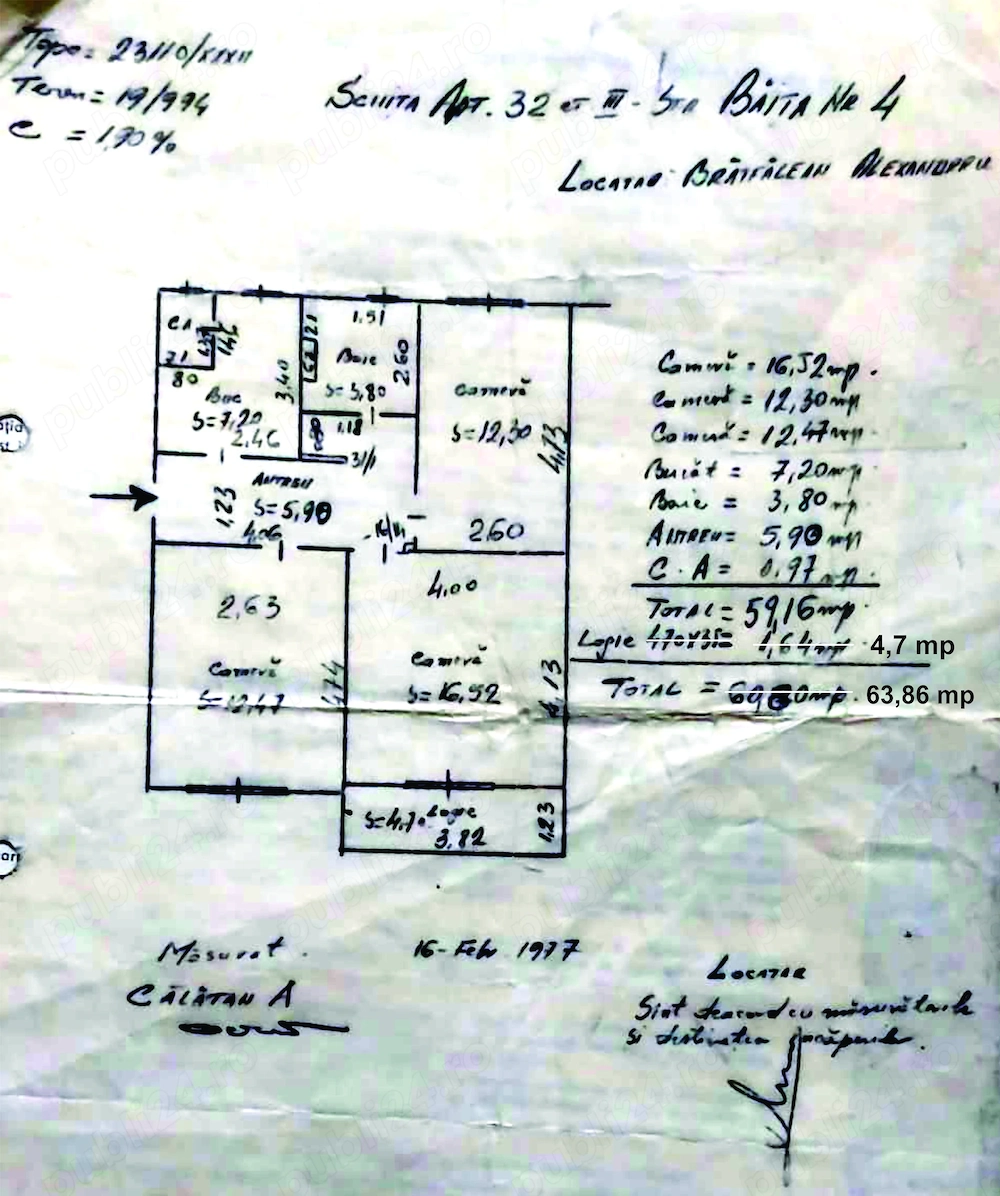 Topo = 23110/XXXII
Teren = 19/994
C = 1,90%
SCHITA APT. 32 et III - STR BĂIȚA NR 4
LOCATAR BRĂTFĂLEAN ALEXANDRU
CA
1.51
71
80
Buc
S=7,20
2.46
3,40
Baie
S=3,80
2.60
1.18
Cameră
S=12,30
4,13
2.60
ANTREU
S=5,90
1,23
4,06
2,63
Cameră
S=12,47
4,74
4.00
Cameră
S=16,52
4,13
S=4,70 Logie
3,82
1,23
Cameră = 16,52 mp.
Cameră = 12,30 mp
Cameră = 12,47 mp
Bucăt = 7,20 mp
Baie = 3,80 mp
ANTREU = 5,90 mp
C.A = 0,97 mp
TOTAL = 59,16 mp.
Logie 4,64 mp 4,7 mp
TOTAL = 63,86 mp
Măsurat.
CĂLĂTAN A
16-Feb 1977
LOCATAR
Sint deacord cu măsurătorile
si destinatia încăperilor.
publi24.ro